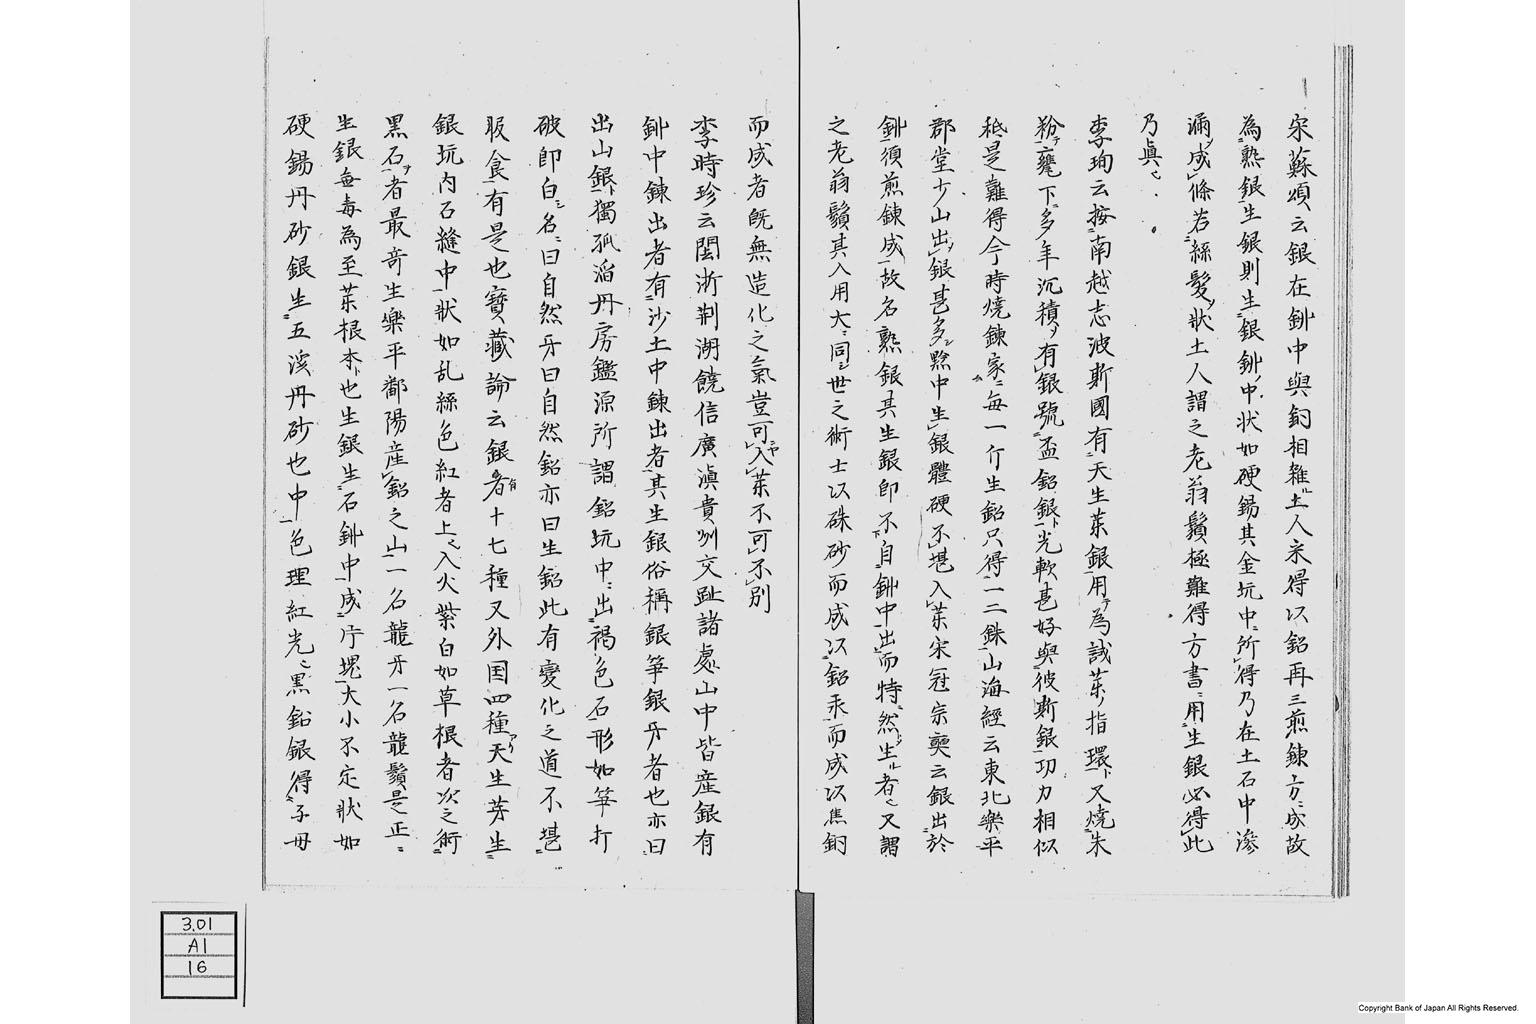 宋蘇頌云銀在鉚中與銅相雜土人采得以鉛再三煎錬方ニ成故
為熟銀生銀則生銀鉚中状如硬錫其金坑中所得乃在土石中滲
漏成條若絲髮状土人謂之老翁鬚極難得方書ニ用生銀必得此
乃真也
李珣云按南越志波斯國有天生茱銀用為試茱指環又燒朱
粉甕下多年沉積有銀號盃鉛銀光軟甚好與彼斯銀功力相似
秪是難得今時燒錬家ニ每一斤生鉛只得一二銖山海經云東北樂平
郡堂少山出銀甚多黔中生銀體硬不堪入茱宋冠宗奭云銀出於
鉚須煎錬成故名熟銀其生銀即不自鉚中出而特然生者也又謂
之老翁鬚其入用大ニ同世之術士以硃砂而成以鉛汞而成以焦銅
而成者既無造化之氣豈可入茱不可不別
李時珍云閩浙荆湖饒信廣滇貴州交趾諸處山中皆產銀有
鉚中錬出者有沙土中錬出者其生銀俗稱銀笋銀牙者也亦曰
出山銀獨孤滔丹房鑑源所謂鉛坑中出褐色石形如笋打
破即白名曰自然牙曰自然鉛亦曰生鉛此有變化之道不堪
服食有是也寶藏論云銀者十七種又外国四種天生芽生
銀坑内石縫中状如乱絲色紅者上也入火紫白如草根者次之術
黑石者最奇生樂平鄱陽産鉛之山一名龍牙一名龍鬚是正ニ
生銀無毒為至茱根本也生銀生石鉚中成片塊大小不定状如
硬錫丹砂銀生五溪丹砂也中色理紅光ニ黑鉛銀得子母
3.01
A1
16
Copyright Bank of Japan All Rights Reserved.